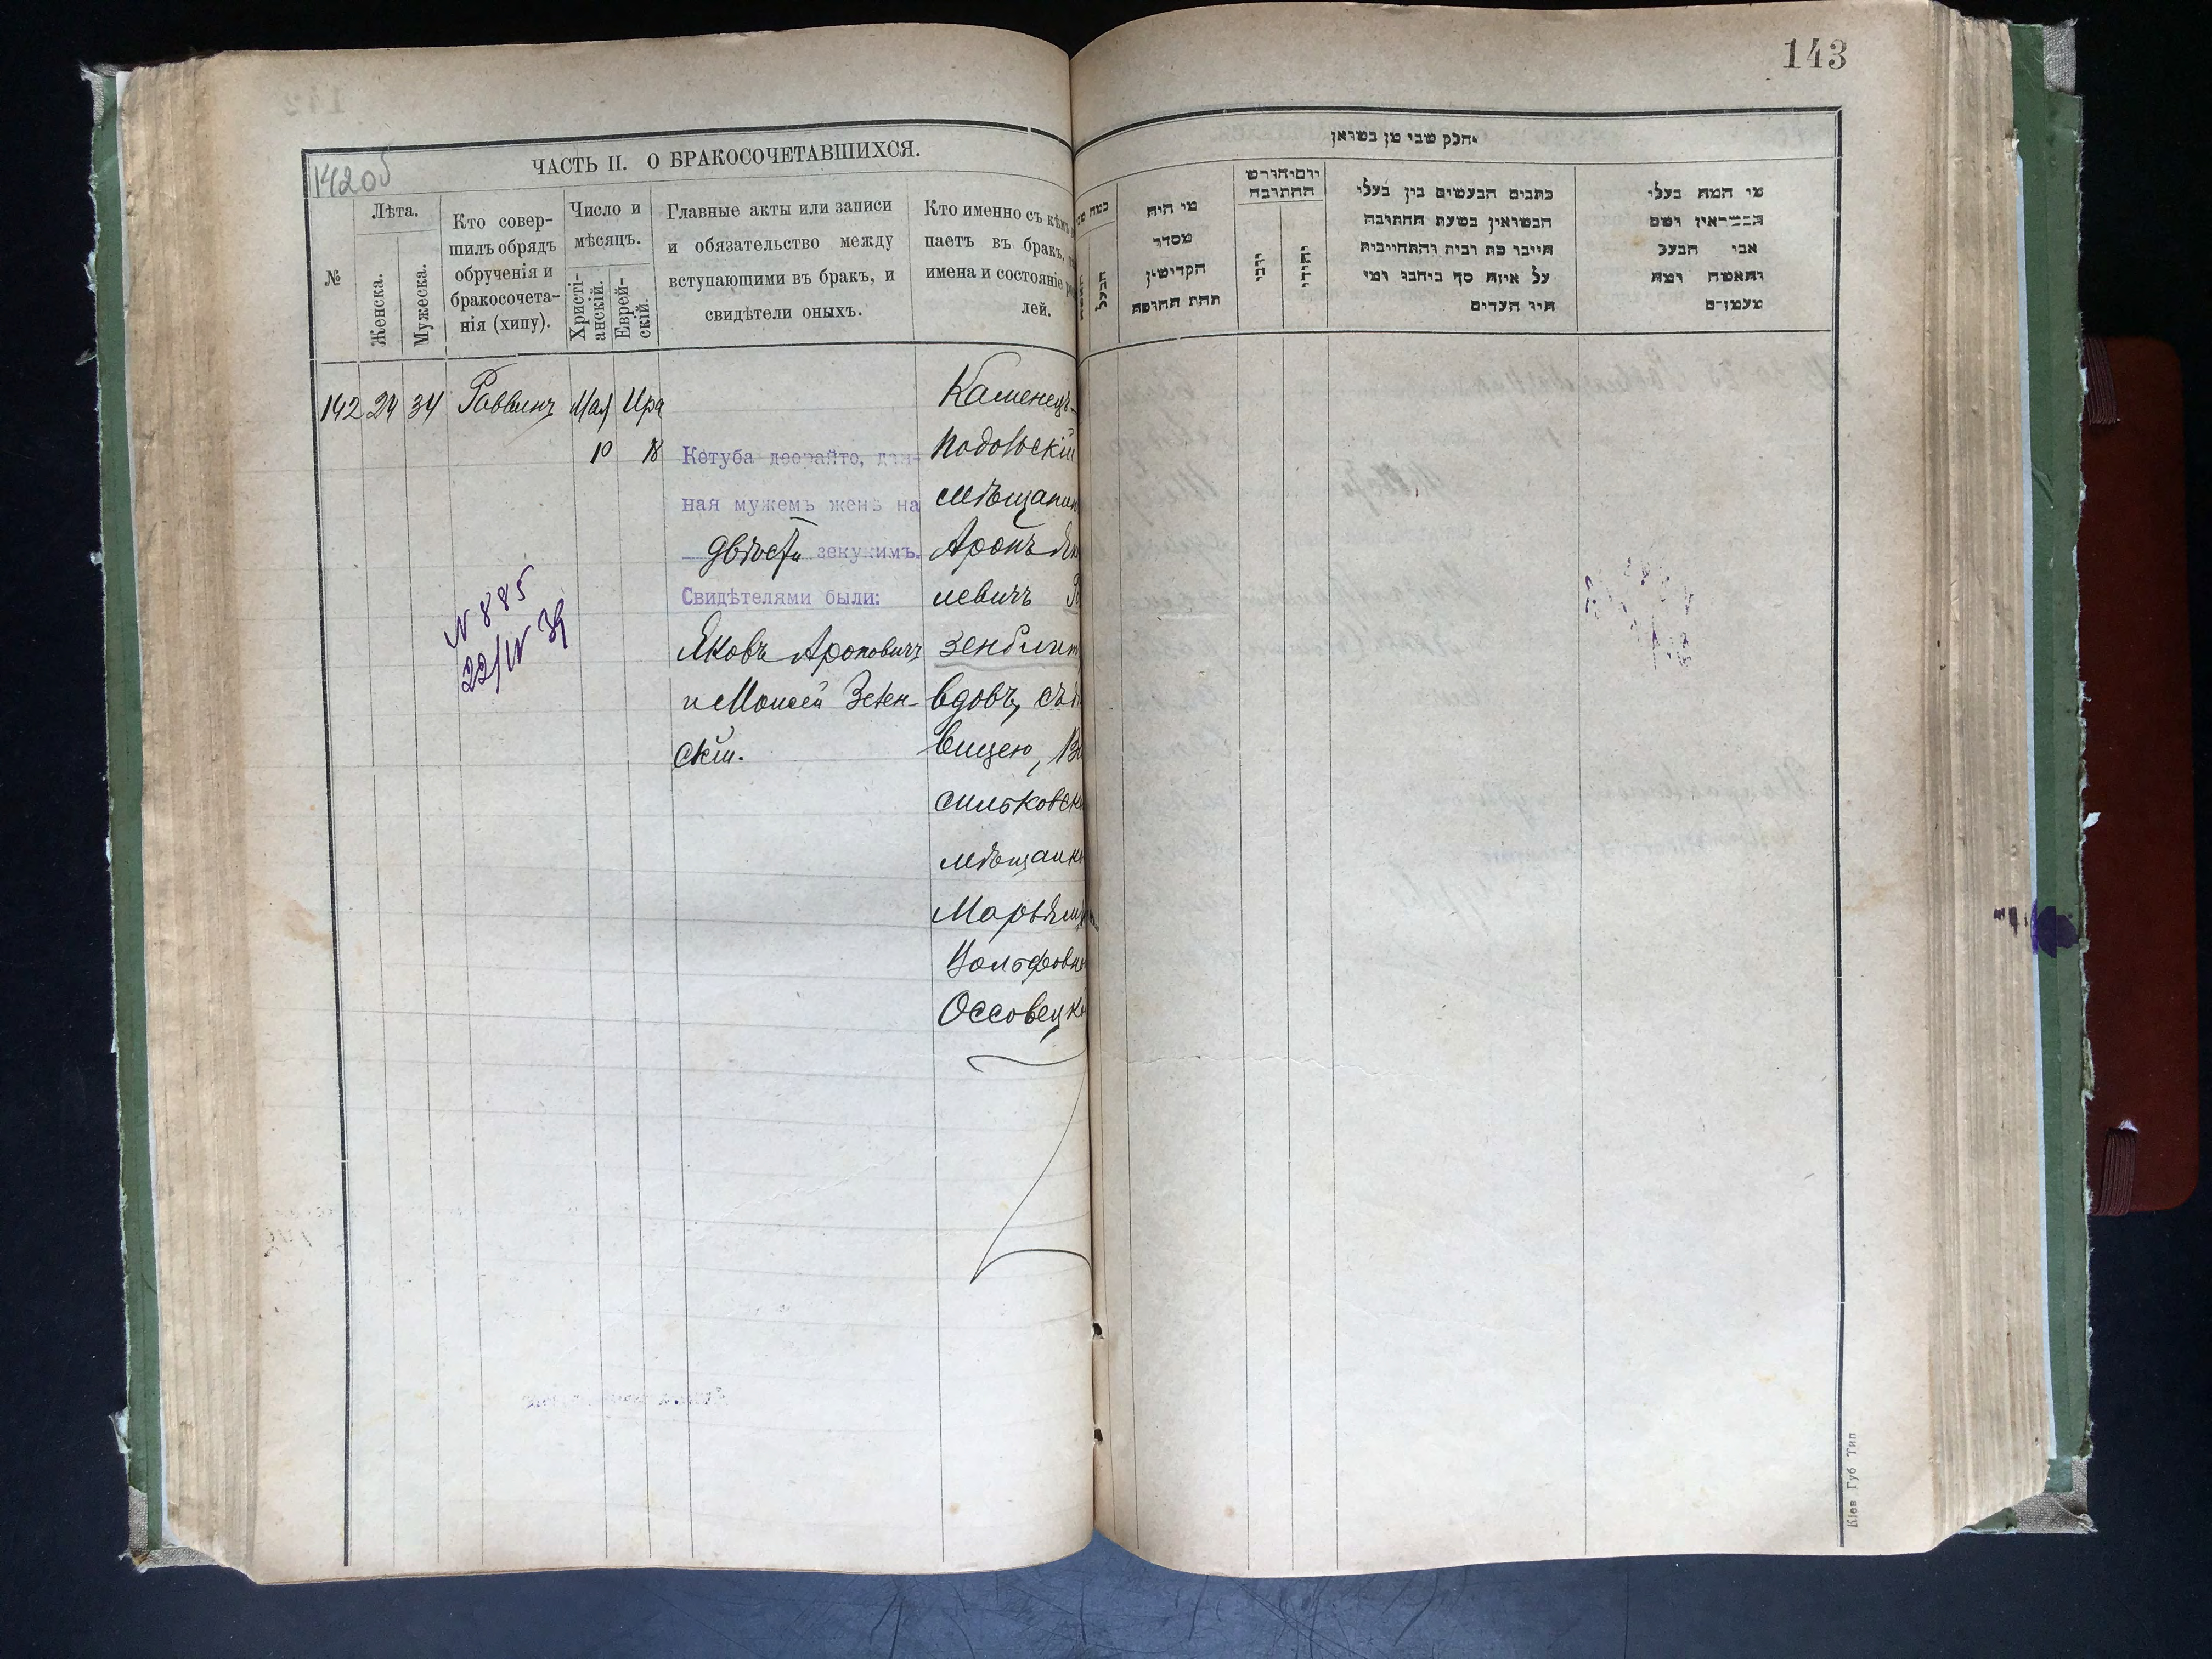 143
142об
ЧАСТЬ II. О БРАКОСОЧЕТАВШИХСЯ.
№
Лѣта.
Женска.
Мужеска.
Кто совер-
шилъ обрядъ
обрученія и
бракосочета-
нія (хипу).
Число и
мѣсяцъ.
Христі-
анскій.
Еврей-
скій.
Главные акты или записи
и обязательство между
вступающими въ бракъ, и
свидѣтели оныхъ.
Кто именно съ кѣмъ
паетъ въ бракъ,
имена и состояніе
лей.
142 24 34 Раввинъ Мая Ира
10 18
Кетуба деорайто, дан-
ная мужемъ женѣ на
двѣсти зекукимъ.
Свидѣтелями были:
Яковъ Ароновичъ
и Моисей Зелен-
скій.
Каменецъ-
Подольскій
мѣщанин
Аронъ
левичъ
зенблит
вдовъ, съ
вицею,
сильковск
мѣщанк
Марьям
Вольфовн
Оссовецк
N 885
22/IV 39
חלק שני מן נשואין
מי היה
מסדר
הקדושין
תחת החופה
הבעל
יום וחודש
החתונה
יוני
יהודי
כתבים הנעשים בין בעלי
הנשואין בשעת החתונה
חייבו כת ובית והתחייבות
על איזה סך ביחבו ומי
היו העדים
מי המה בעלי
הנשואין ושם
אבי הבעל
והאשה ומה
מעמדם
Кіев Губ Тип